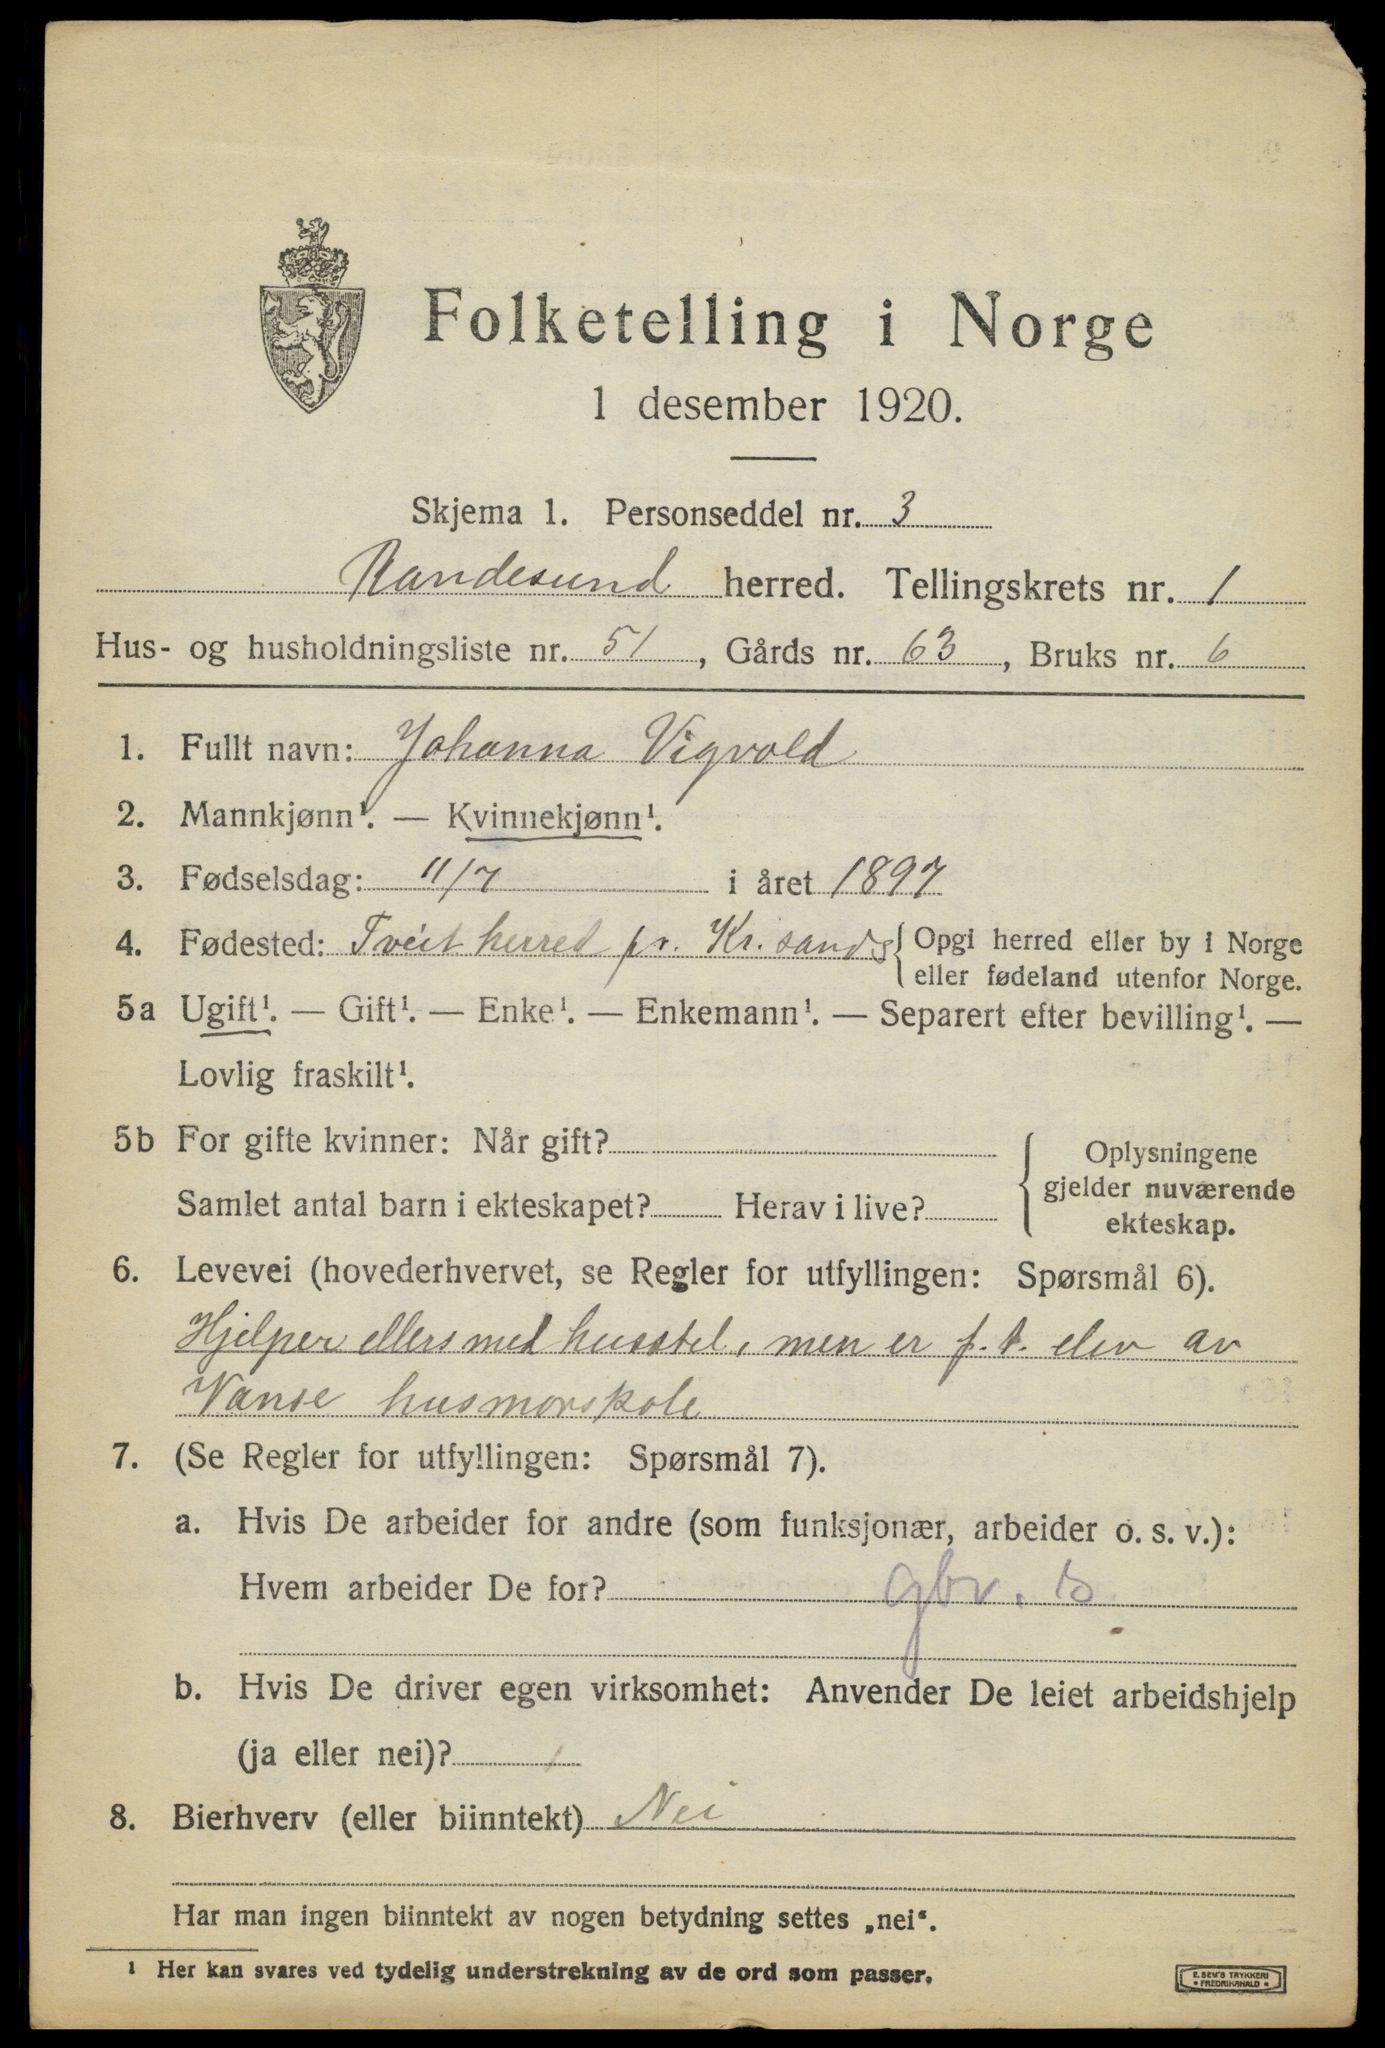 Folketelling i Norge
1 desember 1920.
Skjema 1. Personseddel nr. 3
Randesund herred. Tellingskrets nr. 1
Hus- og husholdningsliste nr. 51, Gårds nr. 63, Bruks nr. 6
1. Fullt navn: Johanna Vigvold
2. Mannkjønn¹. — Kvinnekjønn¹.
3. Fødselsdag: 11/7 i året 1897
4. Fødested: Tveit herred pr. Kr.sands { Opgi herred eller by i Norge
eller fødeland utenfor Norge.
5a Ugift¹. — Gift¹. — Enke¹. — Enkemann¹. — Separert efter bevilling¹. —
Lovlig fraskilt¹.
5b For gifte kvinner: Når gift?
Samlet antal barn i ekteskapet? Herav i live?
{ Oplysningene
gjelder nuværende
ekteskap.
6. Levevei (hovederhvervet, se Regler for utfyllingen: Spørsmål 6).
Hjelper ellers med husstel, men er f.t. elev av
Vanse husmorskole
7. (Se Regler for utfyllingen: Spørsmål 7).
a. Hvis De arbeider for andre (som funksjonær, arbeider o. s. v.):
Hvem arbeider De for? gbr. b
b. Hvis De driver egen virksomhet: Anvender De leiet arbeidshjelp
(ja eller nei)?
8. Bierhverv (eller biinntekt) Nei
Har man ingen biinntekt av nogen betydning settes „nei“.
¹ Her kan svares ved tydelig understrekning av de ord som passer.
E. SEM'S TRYKKERI
• FREDRIKSHALD •